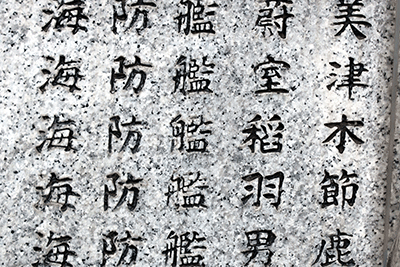 海防艦蔚美
海防艦室津
海防艦稲木
海防艦羽節
海防艦男鹿